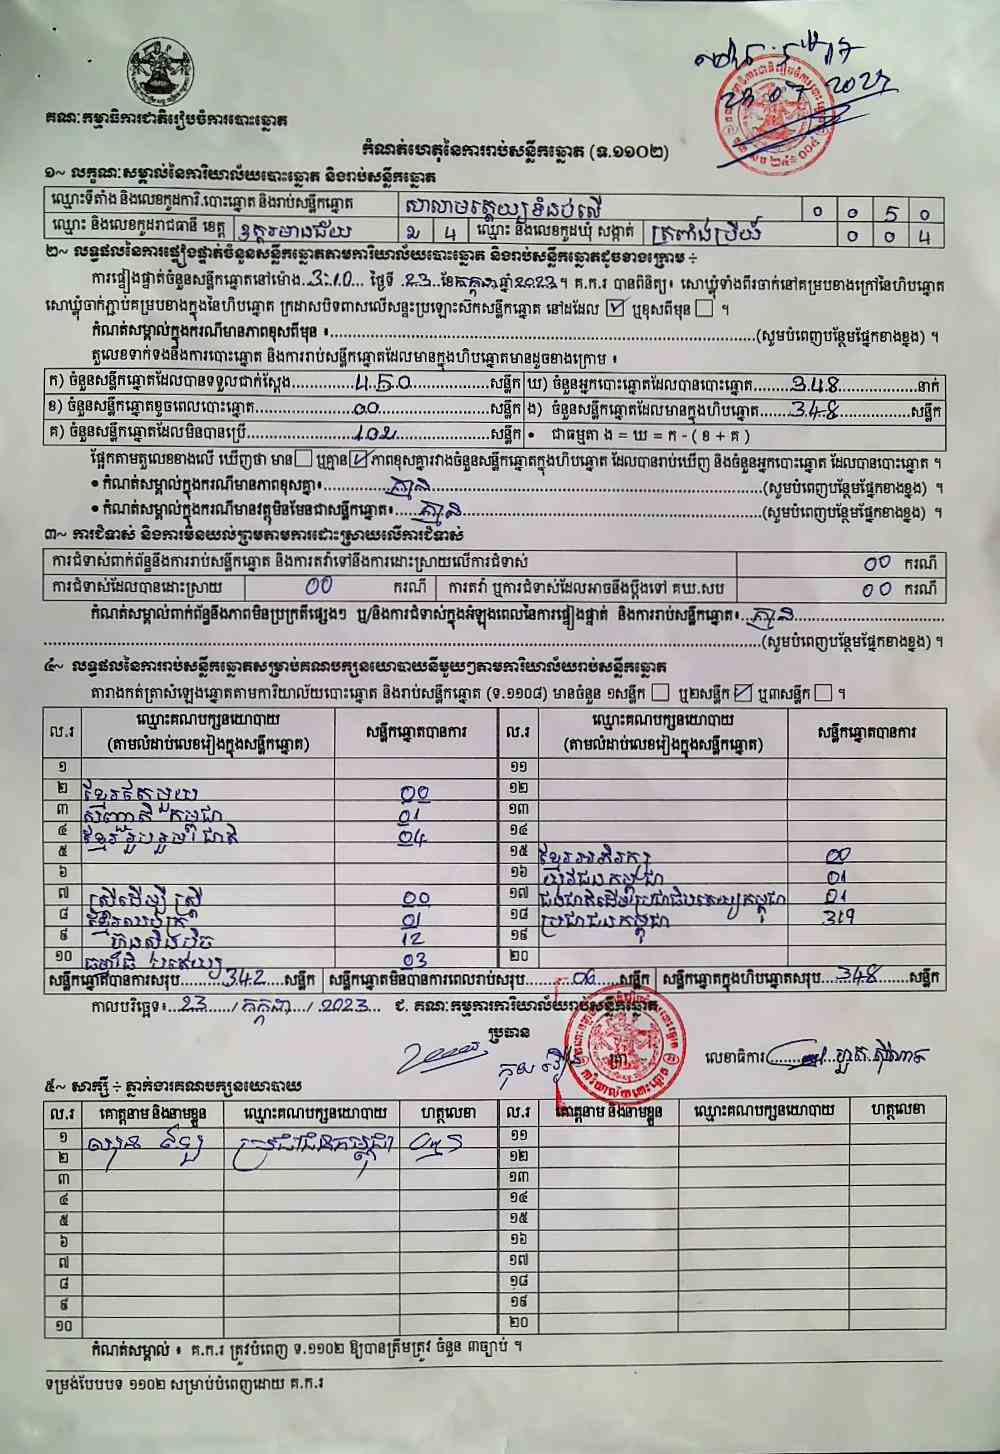 គណៈកម្មាធិការជាតិរៀបចំការបោះឆ្នោត
២៣ ០៧ ២០២៣
កំណត់ហេតុនៃការរាប់សន្លឹកឆ្នោត (ទ.១១០២)
១~ លក្ខណៈសម្គាល់នៃការិយាល័យបោះឆ្នោត និងរាប់សន្លឹកឆ្នោត
ឈ្មោះទីតាំង និងលេខកូដការិ.បោះឆ្នោត និងរាប់សន្លឹកឆ្នោត សាលាមត្តេយ្យទំនប់លើ 0 0 5 0
ឈ្មោះ និងលេខកូដរាជធានី ខេត្ត ឧត្តរមានជ័យ 2 4 ឈ្មោះ និងលេខកូដឃុំ សង្កាត់ ត្រពាំងប្រីយ៍ 0 0 4
២~ លទ្ធផលនៃការផ្ទៀងផ្ទាត់ចំនួនសន្លឹកឆ្នោតតាមការិយាល័យបោះឆ្នោត និងរាប់សន្លឹកឆ្នោតដូចខាងក្រោម ÷
ការផ្ទៀងផ្ទាត់ចំនួនសន្លឹកឆ្នោតនៅម៉ោង...3:10... ថ្ងៃទី .23..ខែកក្កដា ឆ្នាំ2023។ គ.ក.រ បានពិនិត្យ៖ សោឃ្លុំទាំងពីរចាក់នៅគម្របខាងក្រៅនៃហិបឆ្នោត
សោឃ្លុំចាក់ភ្ជាប់គម្របខាងក្នុងនៃហិបឆ្នោត ក្រដាសបិទពាសលើសន្ទះប្រឡោះស៊កសន្លឹកឆ្នោត នៅដដែល ☑ ឬខុសពីមុន ☐ ។
កំណត់សម្គាល់ក្នុងករណីមានភាពខុសពីមុន ៖........(សូមបំពេញបន្ថែមផ្នែកខាងខ្នង) ។
តួលេខទាក់ទងនឹងការបោះឆ្នោត និងការរាប់សន្លឹកឆ្នោតដែលមានក្នុងហិបឆ្នោតមានដូចខាងក្រោម ៖
ក) ចំនួនសន្លឹកឆ្នោតដែលបានទទួលជាក់ស្តែង......450......សន្លឹក ឃ) ចំនួនអ្នកបោះឆ្នោតដែលបានបោះឆ្នោត......348......នាក់
ខ) ចំនួនសន្លឹកឆ្នោតខូចពេលបោះឆ្នោត......00......សន្លឹក ង) ចំនួនសន្លឹកឆ្នោតដែលមានក្នុងហិបឆ្នោត......348......សន្លឹក
គ) ចំនួនសន្លឹកឆ្នោតដែលមិនបានប្រើ......102......សន្លឹក • ជាធម្មតា ង = ឃ = ក - ( ខ + គ )
ផ្អែកតាមតួលេខខាងលើ ឃើញថា មាន ☐ ឬគ្មាន ☑ ភាពខុសគ្នារវាងចំនួនសន្លឹកឆ្នោតក្នុងហិបឆ្នោត ដែលបានរាប់ឃើញ និងចំនួនអ្នកបោះឆ្នោត ដែលបានបោះឆ្នោត ។
• កំណត់សម្គាល់ក្នុងករណីមានភាពខុសគ្នា៖......គ្មាន......(សូមបំពេញបន្ថែមផ្នែកខាងខ្នង) ។
• កំណត់សម្គាល់ក្នុងករណីមានវត្ថុមិនមែនជាសន្លឹកឆ្នោត៖......គ្មាន......(សូមបំពេញបន្ថែមផ្នែកខាងខ្នង) ។
៣~ ការជំទាស់ និងការមិនយល់ព្រមតាមការដោះស្រាយលើការជំទាស់
ការជំទាស់ពាក់ព័ន្ធនឹងការរាប់សន្លឹកឆ្នោត និងការតវ៉ាទៅនឹងការដោះស្រាយលើការជំទាស់ 00 ករណី
ការជំទាស់ដែលបានដោះស្រាយ 00 ករណី ការតវ៉ា ឬការជំទាស់ដែលអាចនឹងប្តឹងទៅ គឃ.សប 00 ករណី
កំណត់សម្គាល់ពាក់ព័ន្ធនឹងភាពមិនប្រក្រតីផ្សេងៗ ឬ/និងការជំទាស់ក្នុងអំឡុងពេលនៃការផ្ទៀងផ្ទាត់ និងការរាប់សន្លឹកឆ្នោត៖...គ្មាន......
......(សូមបំពេញបន្ថែមផ្នែកខាងខ្នង) ។
៤~ លទ្ធផលនៃការរាប់សន្លឹកឆ្នោតសម្រាប់គណបក្សនយោបាយនីមួយៗតាមការិយាល័យរាប់សន្លឹកឆ្នោត
តារាងកត់ត្រាសំឡេងឆ្នោតតាមការិយាល័យបោះឆ្នោត និងរាប់សន្លឹកឆ្នោត (ទ.១១០៨) មានចំនួន ១សន្លឹក ☐ ឬ២សន្លឹក ☑ ឬ៣សន្លឹក ☐ ។
ល.រ ឈ្មោះគណបក្សនយោបាយ (តាមលំដាប់លេខរៀងក្នុងសន្លឹកឆ្នោត) សន្លឹកឆ្នោតបានការ ល.រ ឈ្មោះគណបក្សនយោបាយ (តាមលំដាប់លេខរៀងក្នុងសន្លឹកឆ្នោត) សន្លឹកឆ្នោតបានការ
១ ១១
២ ខ្មែរតែមួយ 00 ១២
៣ សញ្ជាតិកម្ពុជា 01 ១៣
៤ ខ្មែររួបរួមជាតិ 04 ១៤
៥ ១៥ ខ្មែរអភិរក្ស 00
៦ ១៦ យុវជនកម្ពុជា 01
៧ ស្រីដើម្បីស្ត្រី 00 ១៧ ជនជាតិដើមប្រជាធិបតេយ្យកម្ពុជា 01
៨ 01 ១៨ ប្រជាជនកម្ពុជា 319
៩ ហ៊្វុនស៊ិនប៉ិច 12 ១៩
១០ ធម្មាធិបតេយ្យ 03 ២០
សន្លឹកឆ្នោតបានការសរុប...342...សន្លឹក សន្លឹកឆ្នោតមិនបានការពេលរាប់សរុប...06...សន្លឹក សន្លឹកឆ្នោតក្នុងហិបឆ្នោតសរុប...348...សន្លឹក
កាលបរិច្ឆេទ៖...23.../ កក្កដា / 2023... ជ. គណៈកម្មការការិយាល័យរាប់សន្លឹកឆ្នោត
ប្រធាន
លេខាធិការ
៥~ សាក្សី ÷ ភ្នាក់ងារគណបក្សនយោបាយ
ល.រ គោត្តនាម និងនាមខ្លួន ឈ្មោះគណបក្សនយោបាយ ហត្ថលេខា ល.រ គោត្តនាម និងនាមខ្លួន ឈ្មោះគណបក្សនយោបាយ ហត្ថលេខា
១ ប្រជាជនកម្ពុជា ១១
២ ១២
៣ ១៣
៤ ១៤
៥ ១៥
៦ ១៦
៧ ១៧
៨ ១៨
៩ ១៩
១០ ២០
កំណត់សម្គាល់ ៖ គ.ក.រ ត្រូវបំពេញ ទ.១១០២ ឱ្យបានត្រឹមត្រូវ ចំនួន ៣ច្បាប់ ។
ទម្រង់បែបបទ ១១០២ សម្រាប់បំពេញដោយ គ.ក.រ